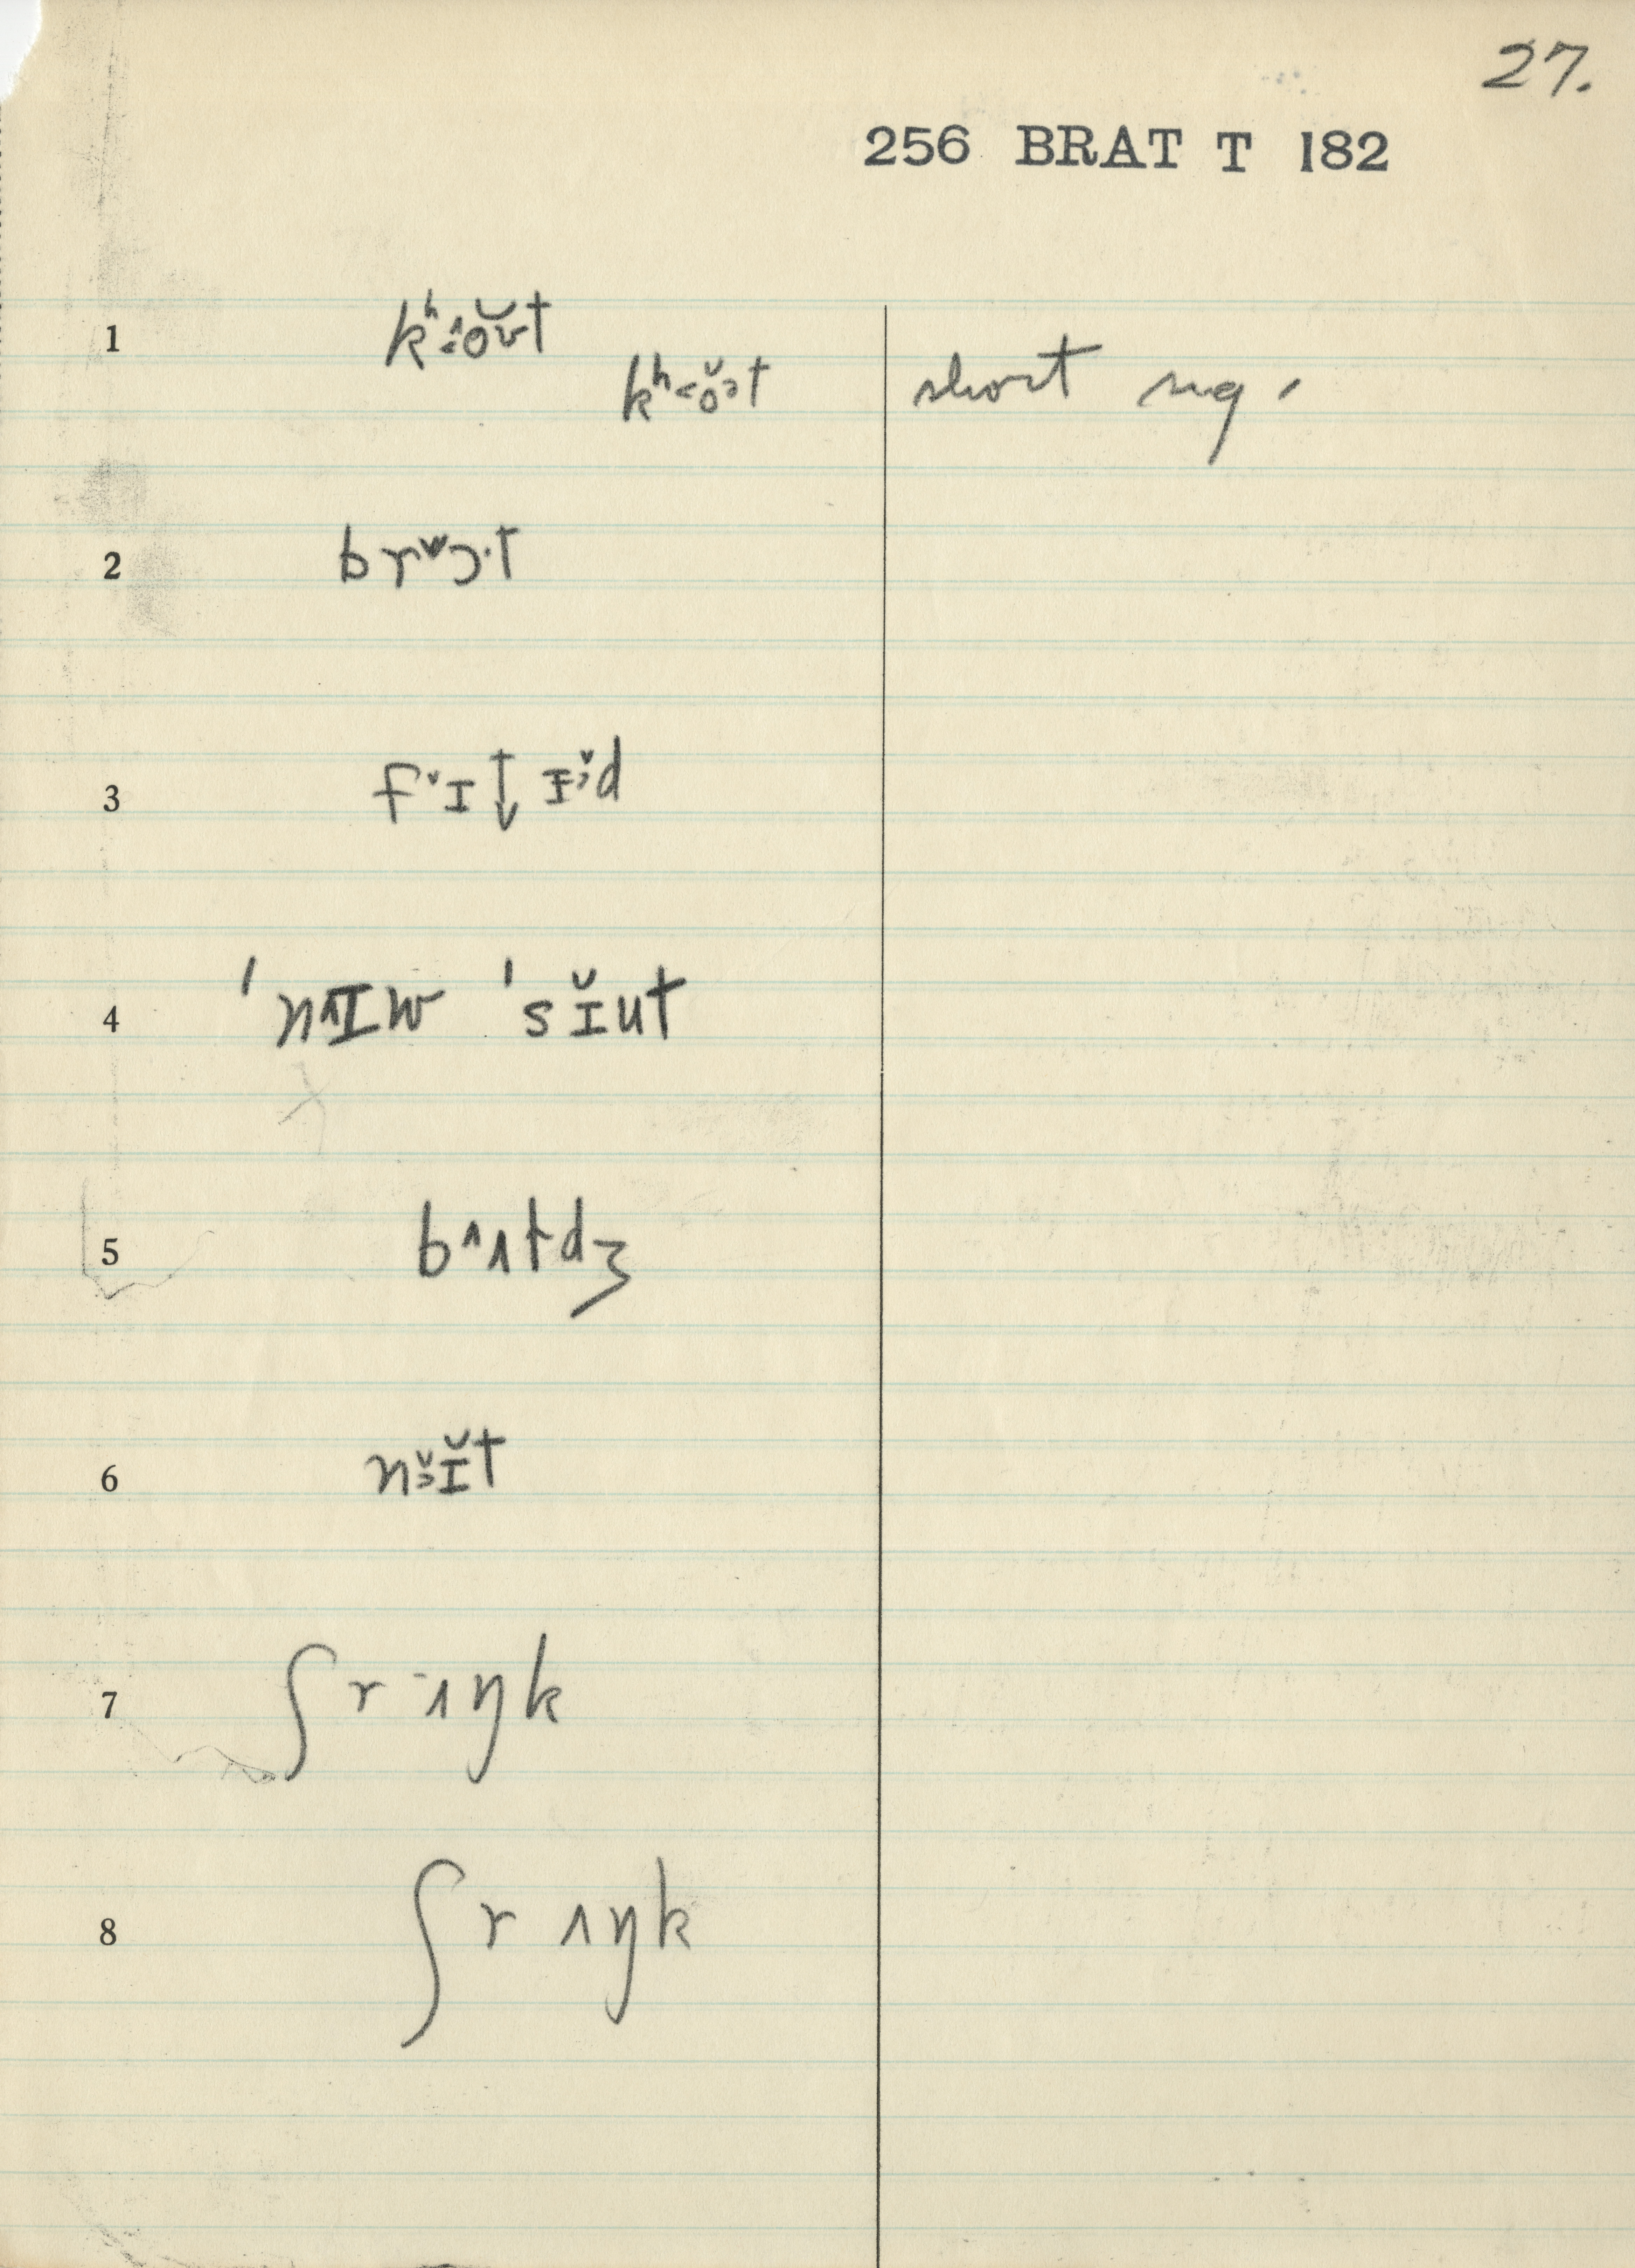 27.
256 BRAT T 182
1 kʰ‸oʊ̆t
kʰ˂ŏɔt short sg.
2 brᵛɔ·t
3 fˇɪ↓ɪˇd
4 ˈnɪw ˈsɪ̆ut
5 b^ʌtdʒ
6 nɪ̆t
7 ʃr-ʌŋk
8 ʃr ʌŋk